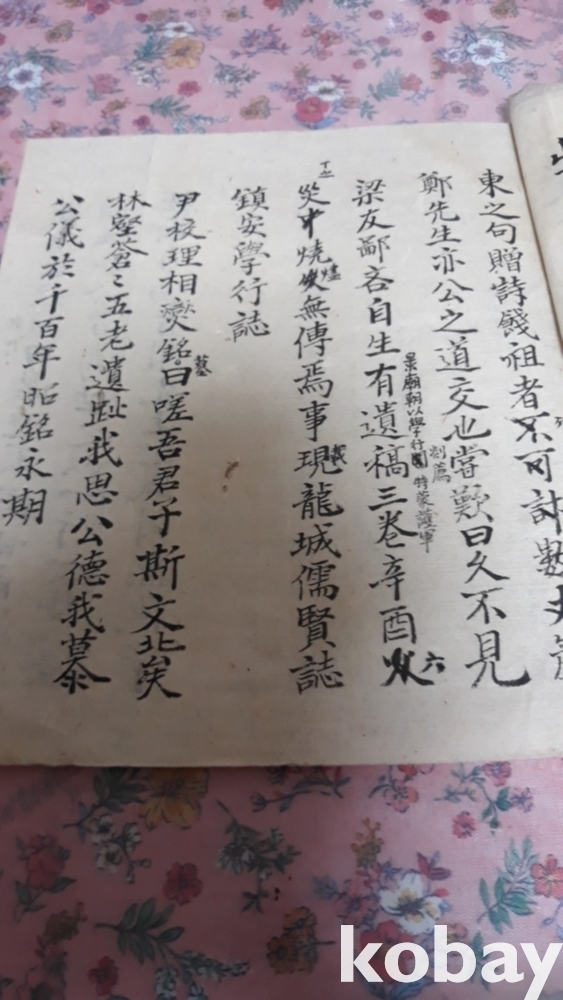 東之句贈詩餞祖者不可計數
鄭先生亦公之道交也嘗歎曰久不見
梁友鄙吝自生有遺稿三卷辛酉六
景廟朝以學行
特蒙
災中燒燼無傳焉事現龍城儒賢誌
鎮安學行誌
尹校理相爕墓銘曰嗟吾君子斯文北矣
林壑蒼〻五老遺趾我思公德我慕
公儀於千百年昭銘永期
kobay